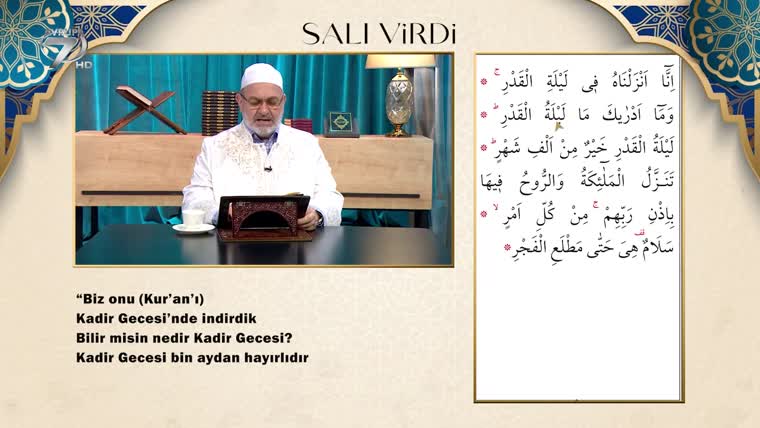 SALI ViRDi
AVRUPA
7
HD
اِنَّٓا اَنْزَلْنَاهُ ف۪ي لَيْلَةِ الْقَدْرِۚ
وَمَٓا اَدْرٰيكَ مَا لَيْلَةُ الْقَدْرِۜ
لَيْلَةُ الْقَدْرِ خَيْرٌ مِنْ اَلْفِ شَهْرٍۜ
تَنَزَّلُ الْمَلٰٓئِكَةُ وَالرُّوحُ ف۪يهَا
بِاِذْنِ رَبِّهِمْۚ مِنْ كُلِّ اَمْرٍۙ
سَلَامٌ۠ هِيَ حَتّٰى مَطْلَعِ الْفَجْرِ
“Biz onu (Kur’an’ı)
Kadir Gecesi’nde indirdik
Bilir misin nedir Kadir Gecesi?
Kadir Gecesi bin aydan hayırlıdır